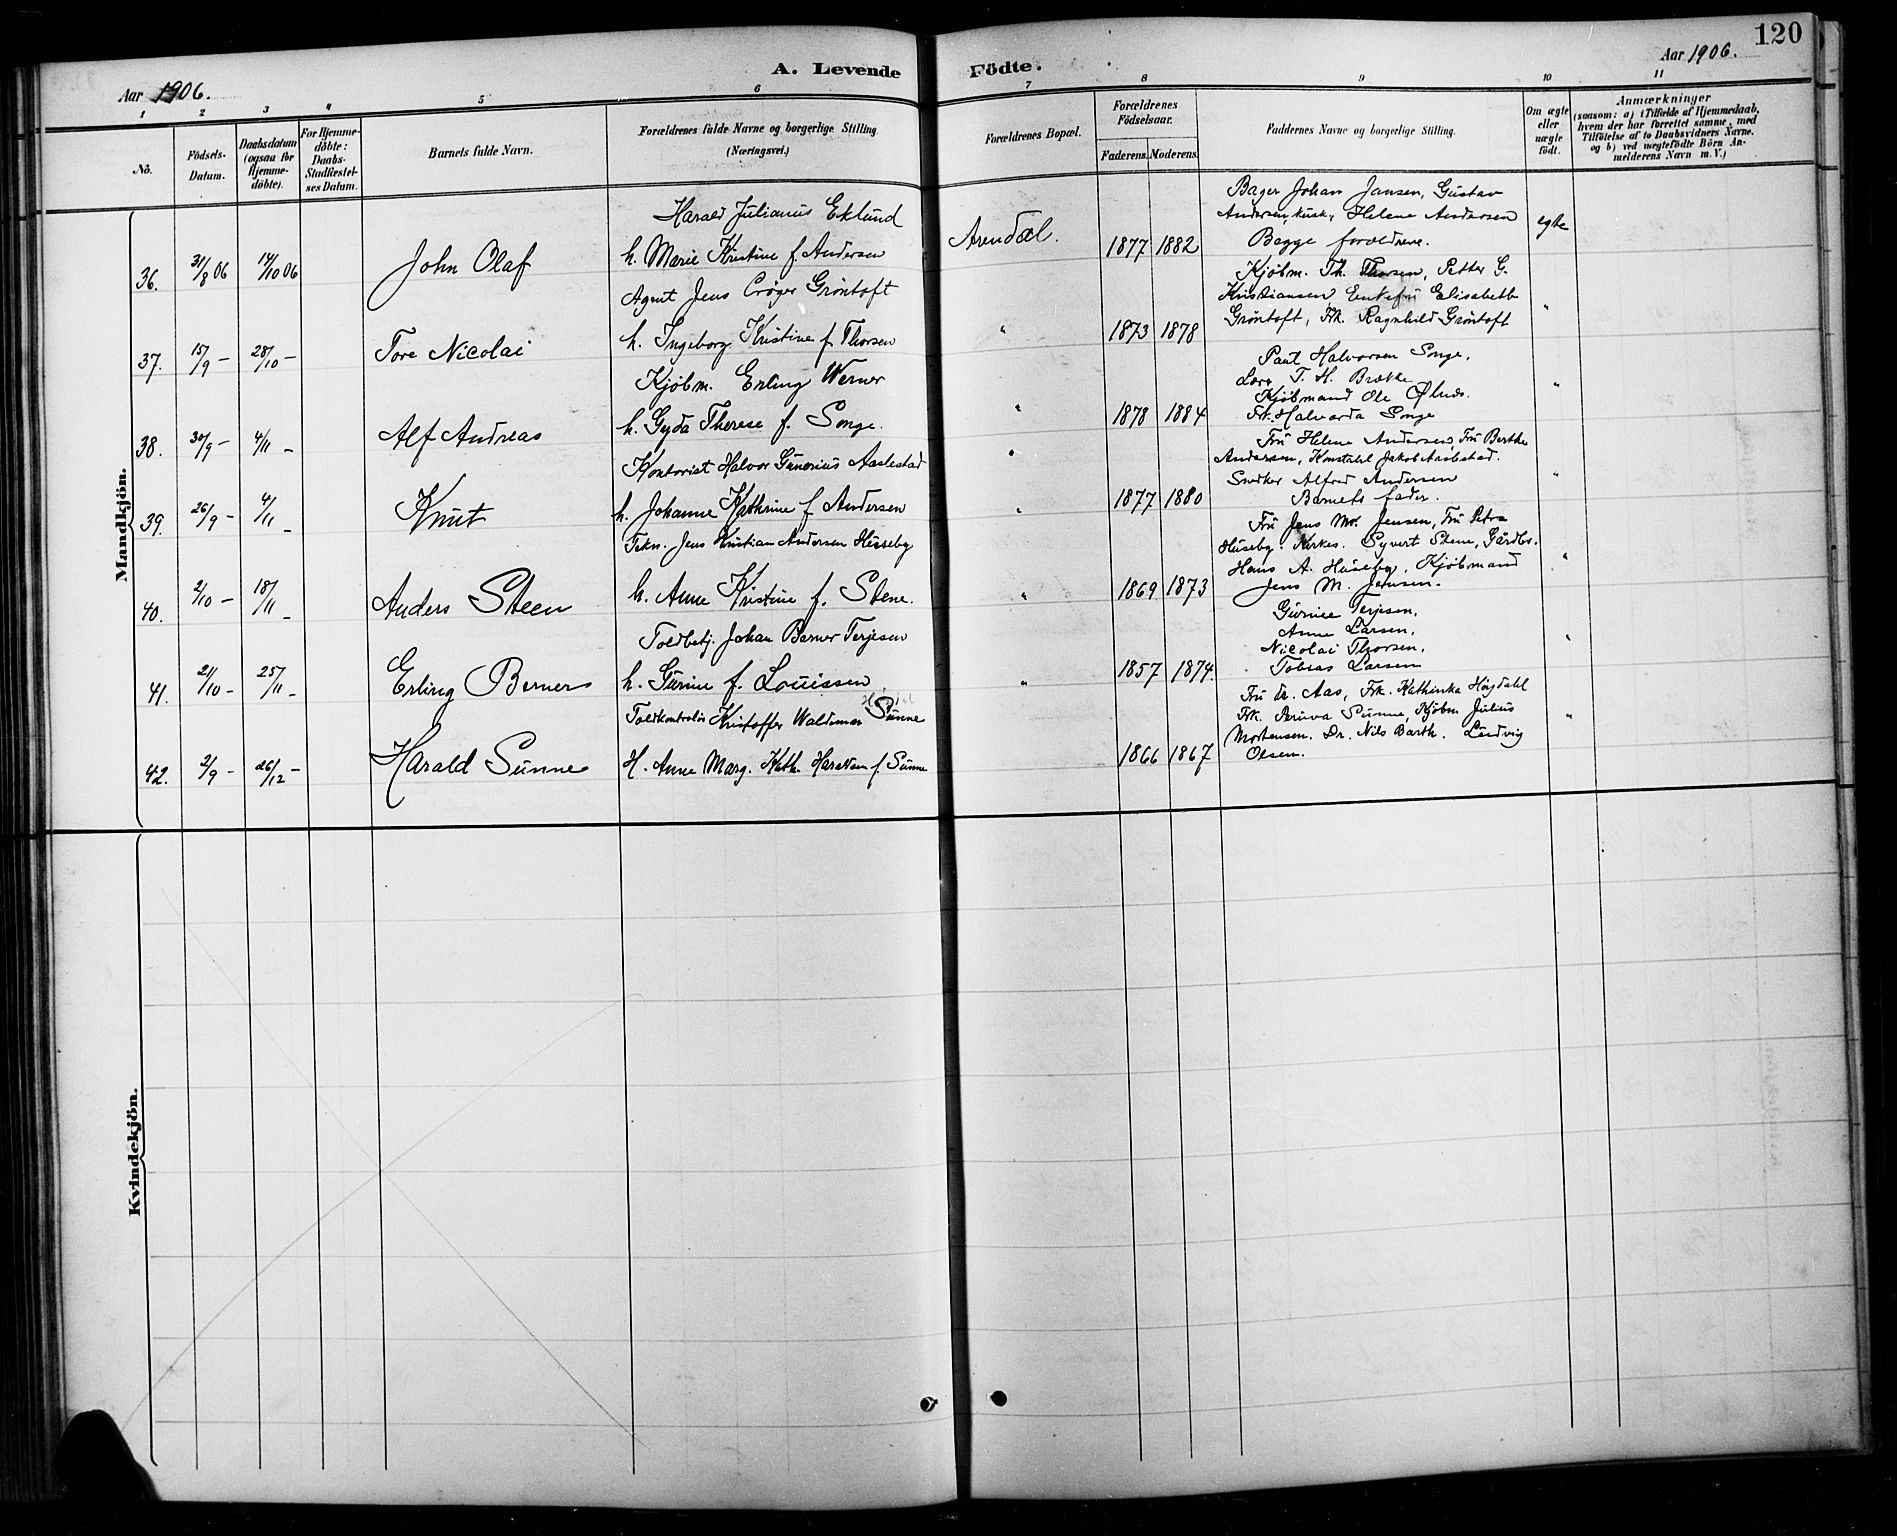 120
Aar 1906.
A. Levende Födte.
Aar 1906.
1 2 3 4 5 6 7 8 9 10 11
No.
Födsels-
Datum.
Daabsdatum
(ogsaa for
Hjemme-
döbte).
For Hjemme-
döbte:
Daabs-
Stadfæstel-
ses Datum.
Barnets fulde Navn.
Forældrenes fulde Navne og borgerlige Stilling.
(Næringsvei.)
Forældrenes Bopæl.
Forældrenes
Födselsaar.
Faderens. Moderens.
Faddernes Navne og borgerlige Stilling.
Om ægte
eller
uægte
födt.
Anmærkninger
(saasom: a) i Tilfælde af Hjemmedaab,
hvem der har forrettet samme, med
Tilföielse af to Daabsvidners Navne.
og b) ved uægtefödte Börn An-
melderens Navn m. V.)
Mandkjön.
36. 31/8 06 14/10 06 John Olaf
Harald Julianus Eklund
h. Marie Kristine f. Andersen
Arendal. 1877 1882
Bager Johan Jansen, Gustav
Andersen, kusk, Helene Andersen
Begge forældrene.
egte
37. 15/9 – 28/10 – Tore Nicolai
Agent Jens Crøger Gröntoft
h. Ingeborg Kristine f. Thorsen
" 1873 1878
Kjøbm. Th. Thorsen, Petter G.
Kristiansen, Enkefru Elisabeth
Gröntoft, Frk. Ragnhild Gröntoft
"
38. 30/9 – 4/11 – Alf Andreas
Kjøbm. Erling Werner
h. Gyda Therese f. Songe.
" 1878 1884
Paul Halvorsen Songe,
T. H. Brække
Kjøbmand Ole
Frk. Halvarda Songe
"
39. 26/9 – 4/11 – Knut
Kontorist Halvor Gunerius Aaslestad
h. Johanne Kathrine f. Andersen
" 1877 1880
Fru Helene Andersen, Fru Berthe
Andersen, Konstabel Jakob Aaslestad.
Snedker Alfred Andersen
Barnets fader.
"
40. 2/10 – 18/11 – Anders Steen
Tekn. Jens Kristian Andersen Hüseby
h. Anne Kristine f. Stene.
" 1869 1873
Fru Jens M. Jensen, Fru Petra
Hüseby. Kirkes. Syvert Stene, Gårdbr.
Hans A. Hüseby, Kjøbmand
Jens M. Jensen.
"
41. 21/10 – 25/11 – Erling Berner
Toldbetj. Johan Berner Terjesen
h. Gurine f. Louissen
" 1857 1874.
Gurine Terjesen.
Anne Larsen.
Nicolai Thorsen.
Tobias Larsen
"
42. 2/9 – 26/12 – Harald Sunne
Toldkontrolør Kristoffer Waldemar Sunne
H. Anne Marg. Kath. f. Sunne
1866 1867
Fru Dr. Aas, Frk. Kathinka Høydahl
Frk. Sunne, Kjøbm. Julius
Mortensen. Dr. Nils Barth. Ludvig
Olsen.
"
Kvindekjön.